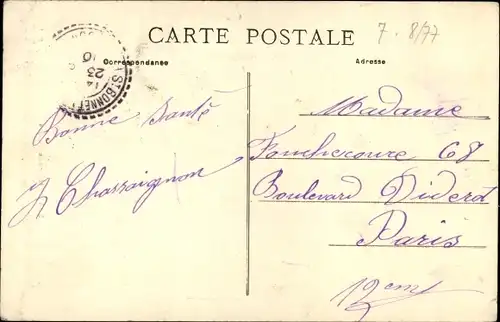 CARTE POSTALE
7 - 8/77
Correspondance
Adresse
ST BONNET
14
23
10
Bonne Santé
Chassaignon
Madame
68
Boulevard Diderot
Paris
12em